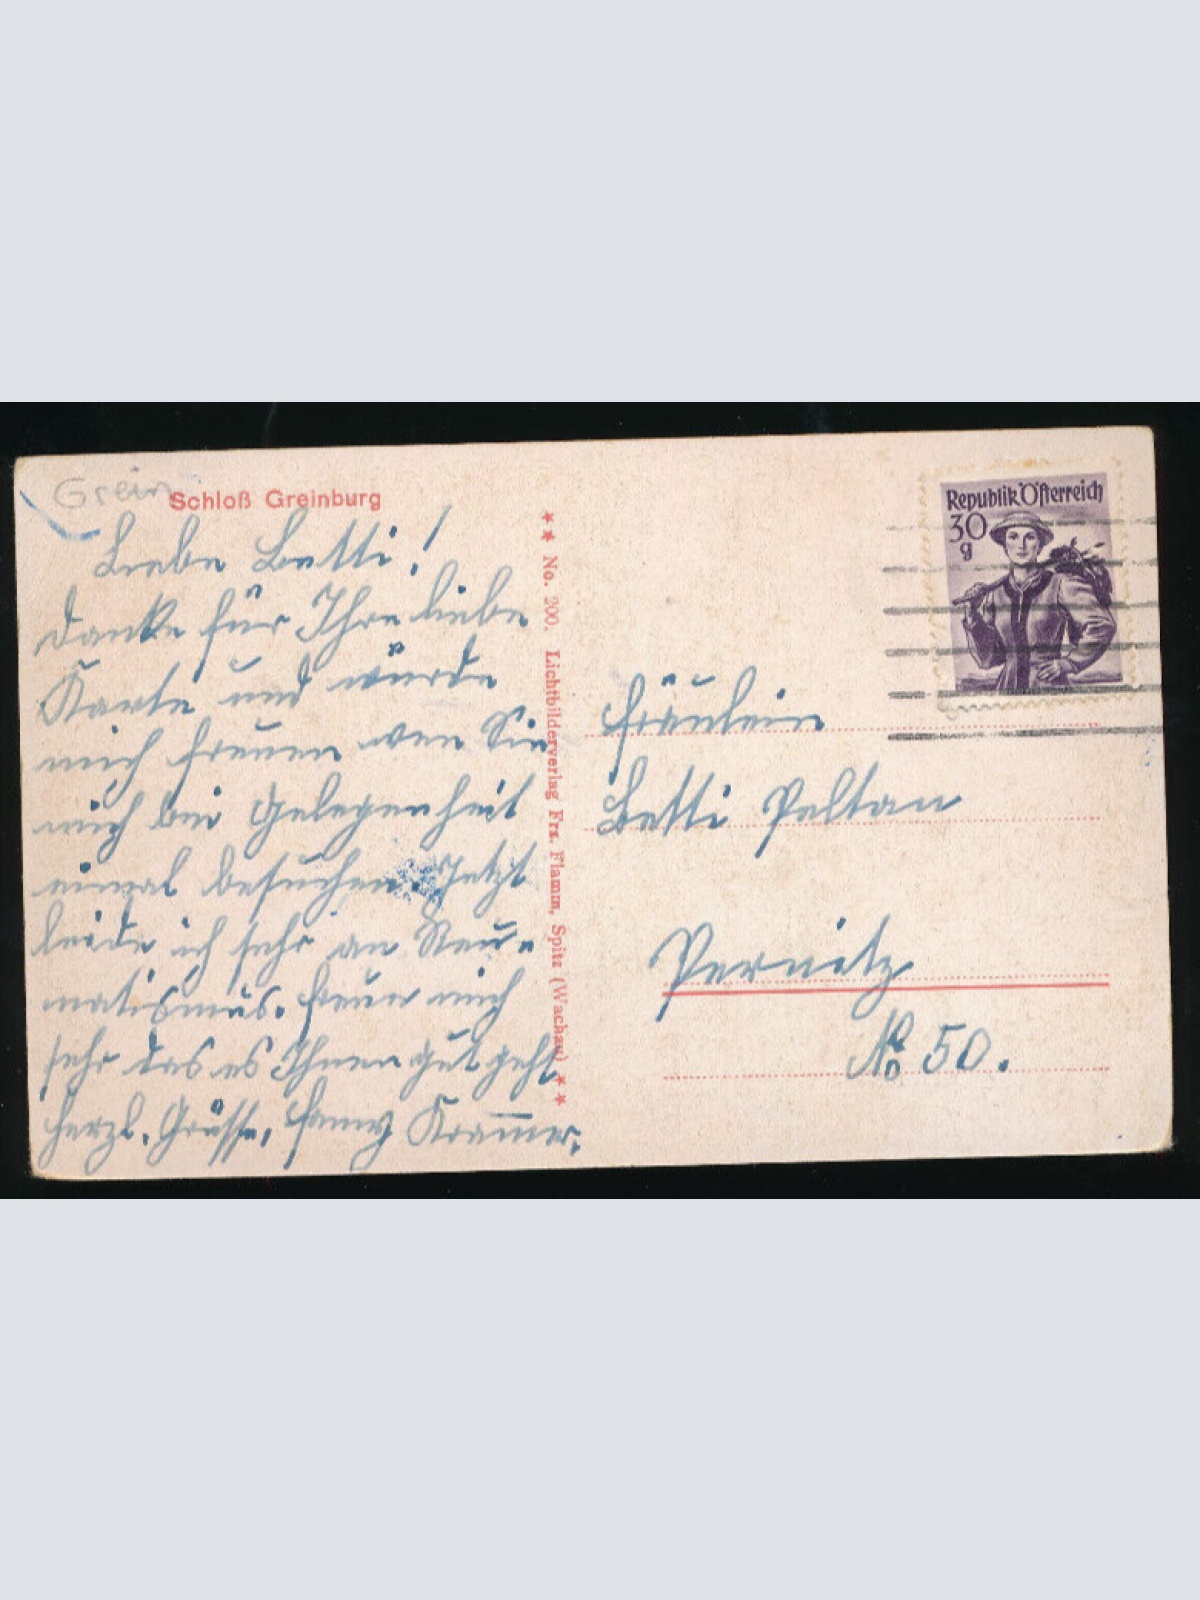 Grein
Schloß Greinburg
Liebe Betti!
Danke für Ihre liebe
Karte und würde
mich freuen wen Sie
mich bei Gelegenheit
einmal besuchen. Jetzt
leide ich sehr an Reu-
matismus. Freue mich
sehr das es Ihnen gut geht
herzl. Grüsse, Fanny Kramer.
★ ★ No. 200. Lichtbilderverlag Frz. Flamm, Spitz (Wachau) ★ ★
Republik Österreich
30
g
Fräulein
Betti Peltan
Pernitz
No 50.